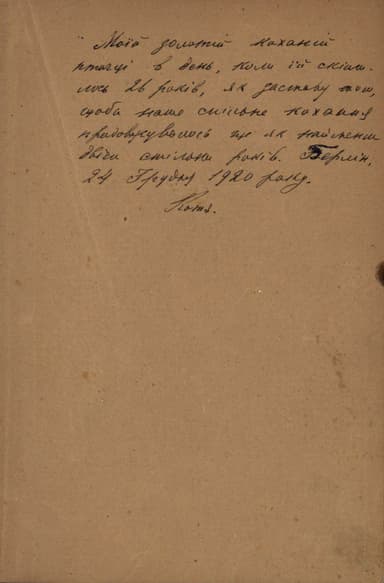 Моїй золотій коханій
птащі в день, коли їй скінчи-
лось 26 років, як заставу того,
щоби наше спільне кохання
продовжувалось ще як найменш
двічи стільки років. Берлін,
24 Грудня 1920 року.
Котя.